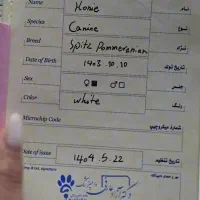 Name Konie نام
Species Canine نوع
Breed Spitz Pommeranian نژاد
Date of Birth 1403.10.10 تاریخ تولد
Sex ♀■ ♂□ جنس
Color white رنگ
Microchip Code شماره میکروچیپ
Date of Issue 1404.5.22 تاریخ تنظیم